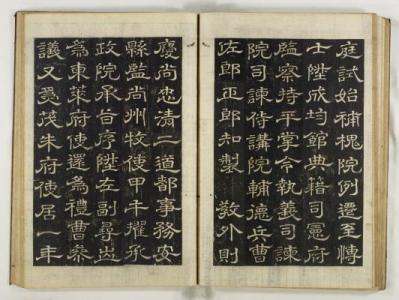 庭試始補槐院例遷至博
士陞成均館典籍司憲府
監察持平掌令執義司諫
院司諫侍講院輔德兵曹
佐郎正郎知製 敎外則
慶尚忠淸二道都事務安
縣監尚州牧使甲午擢承
政院承旨序陞左副尋出
爲東萊府使還爲禮曹參
議又爲茂朱府使居一年